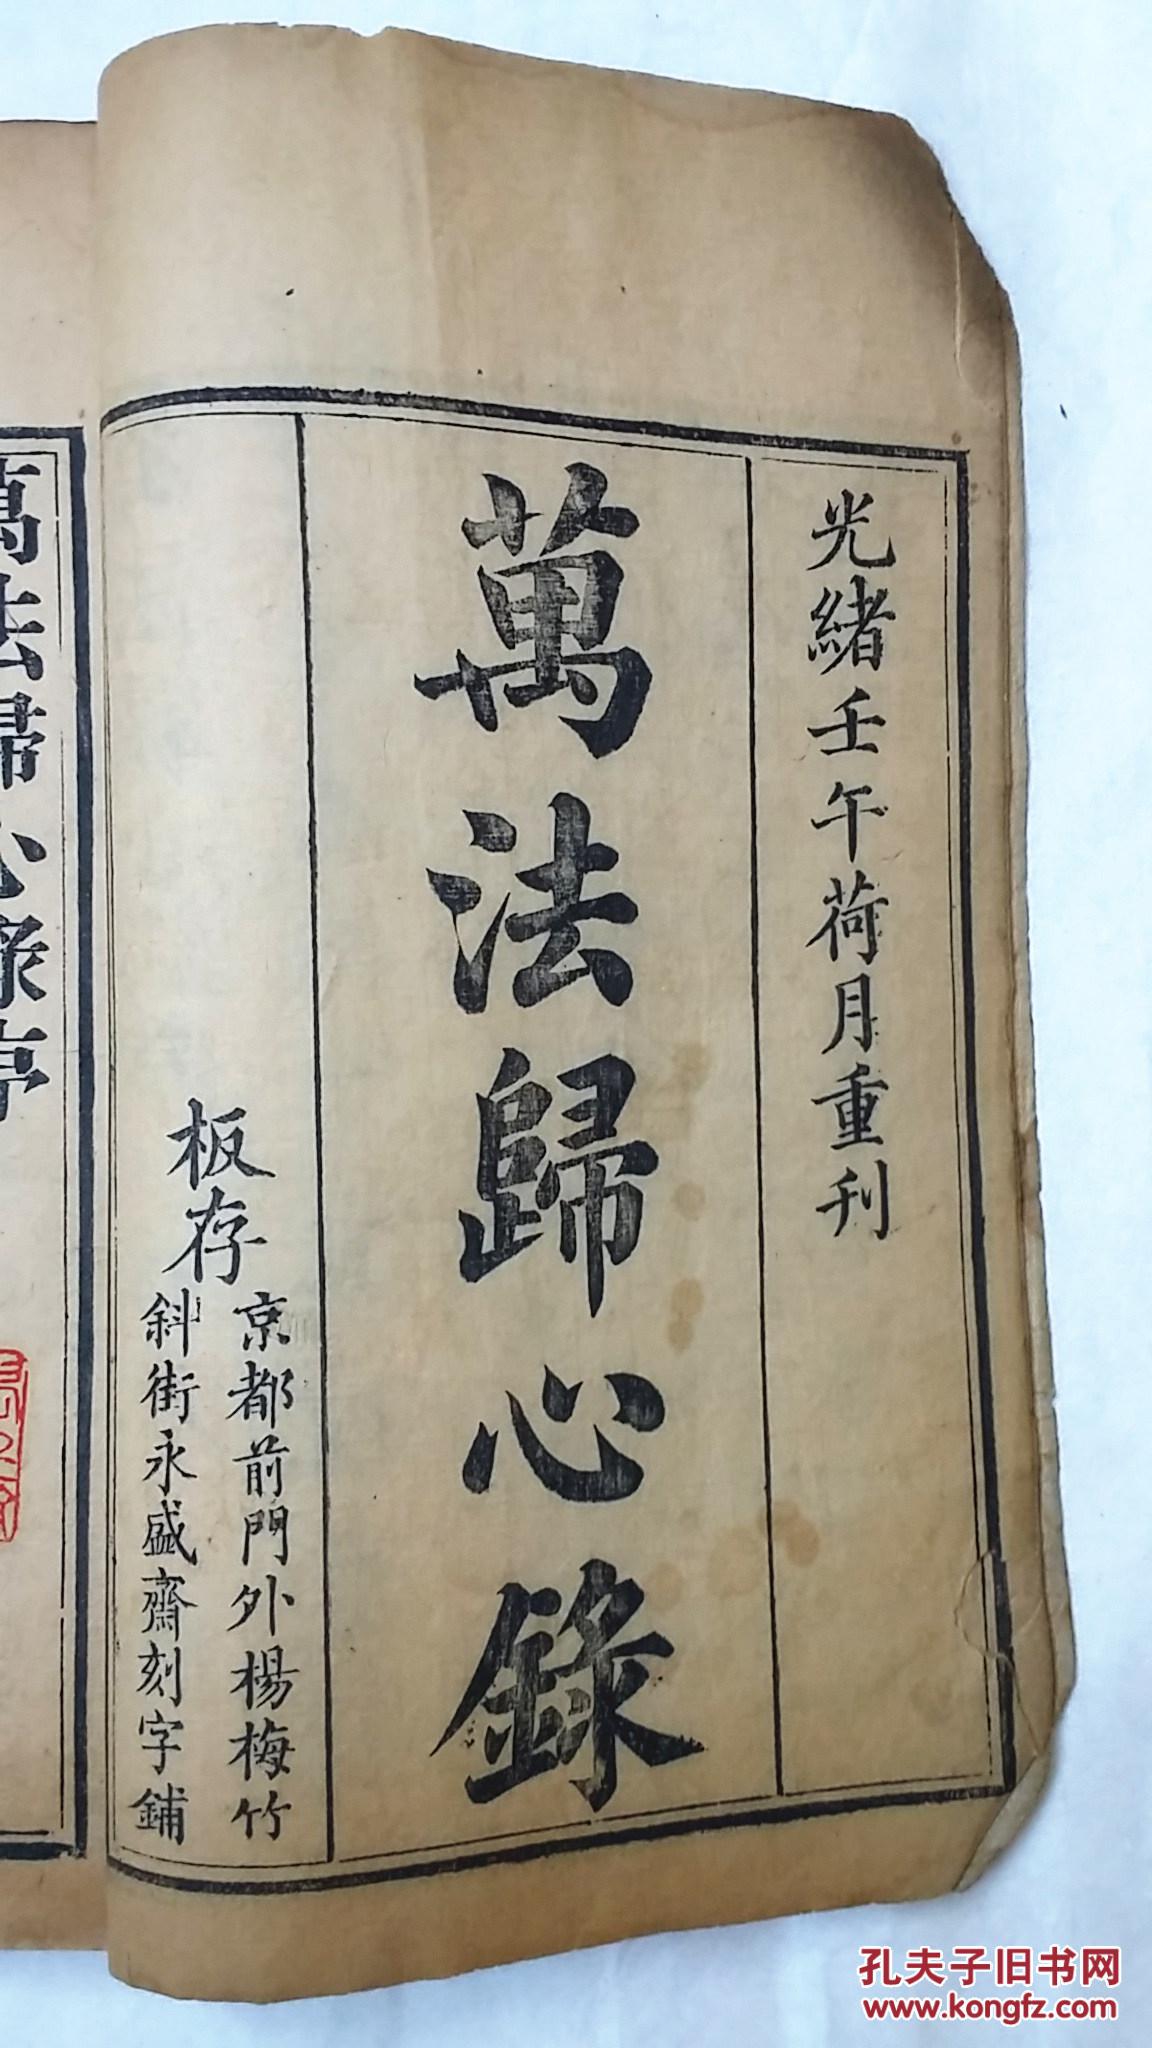 光緒壬午荷月重刊
萬法歸心錄
板存
京都前門外楊梅竹
斜街永盛齋刻字鋪
萬法歸心錄序
孔夫子旧书网
www.kongfz.com